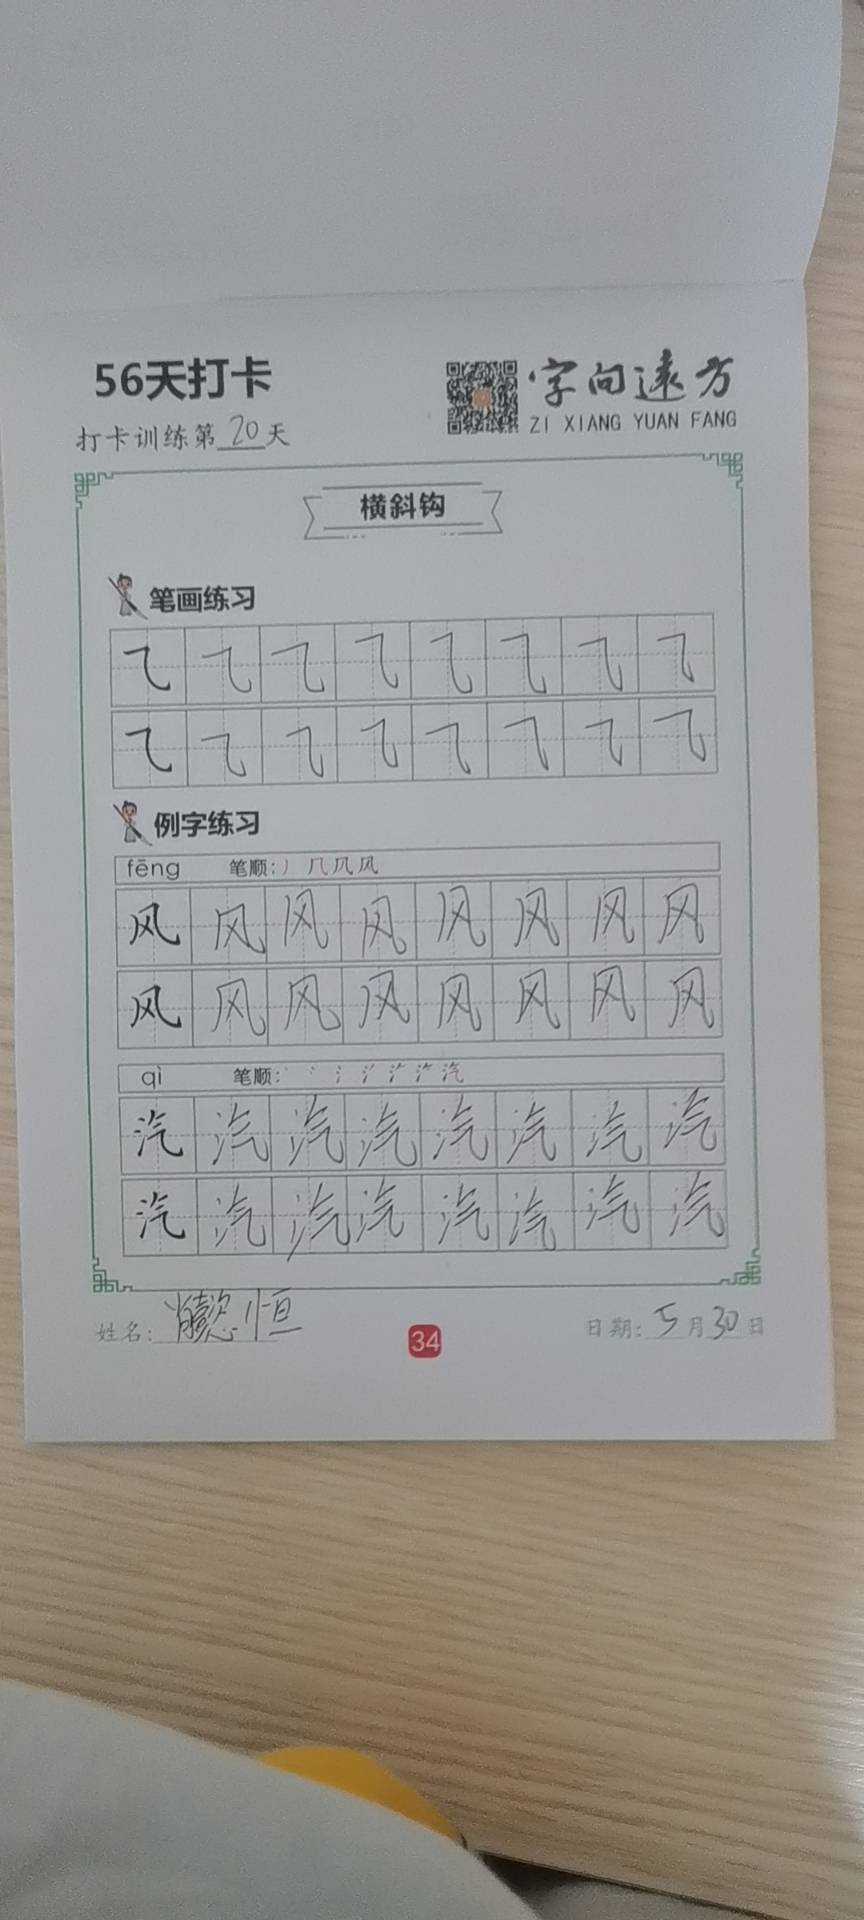 56天打卡
字向远方
ZI XIANG YUAN FANG
打卡训练第20天
横斜钩
笔画练习
⺄ ⺄ ⺄ ⺄ ⺄ ⺄ ⺄ ⺄
⺄ ⺄ ⺄ ⺄ ⺄ ⺄ ⺄ ⺄
例字练习
fēng 笔顺：丿 几 凡 风
风 风 风 风 风 风 风 风
风 风 风 风 风 风 风 风
qì 笔顺：
汽 汽 汽 汽 汽 汽 汽 汽
汽 汽 汽 汽 汽 汽 汽 汽
姓名： 恒
34
日期：5月30日